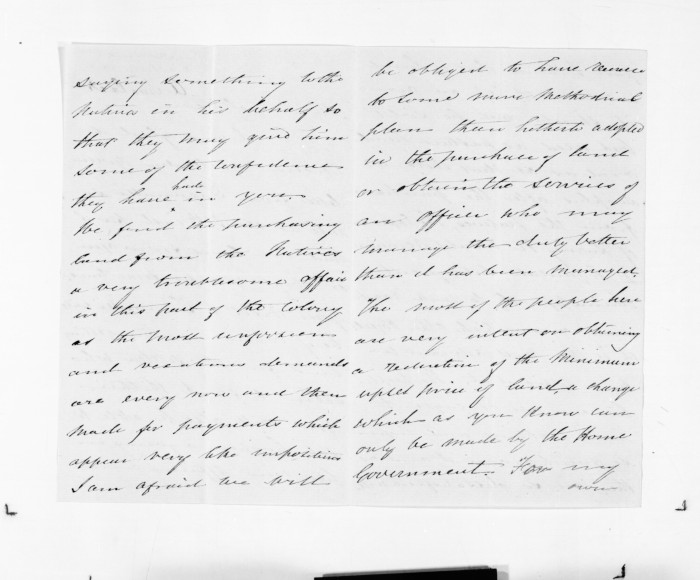 saying something to the
Natives in his behalf so
that they may give him
some of the confidence
they have had in you.
We find the purchasing
land from the Natives
a very troublesome affair
in this part of the Colony
as the most unforeseen
and vexatious demands
are every now and then
made for payments which
appear very like impositions
I am afraid we will
be obliged to have recourse
to some more Methodical
plan than hitherto adopted
in the purchase of land
or obtain the services of
an officer who may
manage the duty better
than it has been managed.
The most of the people here
are very intent on obtaining
a reduction of the Minimum
upset price of land, a change
which as you know can
only be made by the Home
Government. For my
own